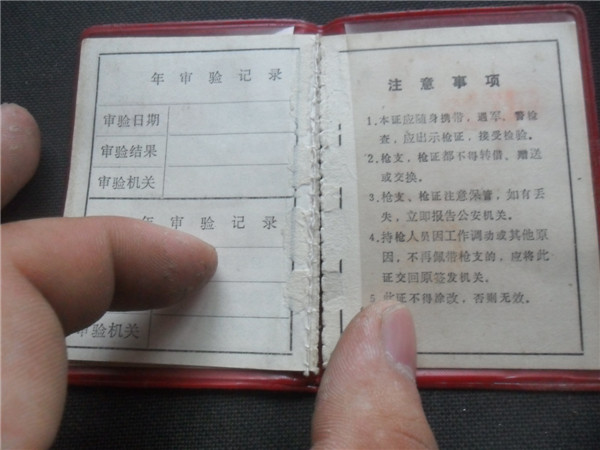 年审验记录
审验日期
审验结果
审验机关
年审验记录
审验机关
注意事项
1.本证应随身携带，遇军、警检
查，应出示枪证，接受检验。
2.枪支，枪证都不得转借、赠送
或交换。
3.枪支、枪证注意保管，如有丢
失，立即报告公安机关。
4.持枪人员因工作调动或其他原
因，不再佩带枪支的，应将此
证交回原签发机关。
5.此证不得涂改，否则无效。